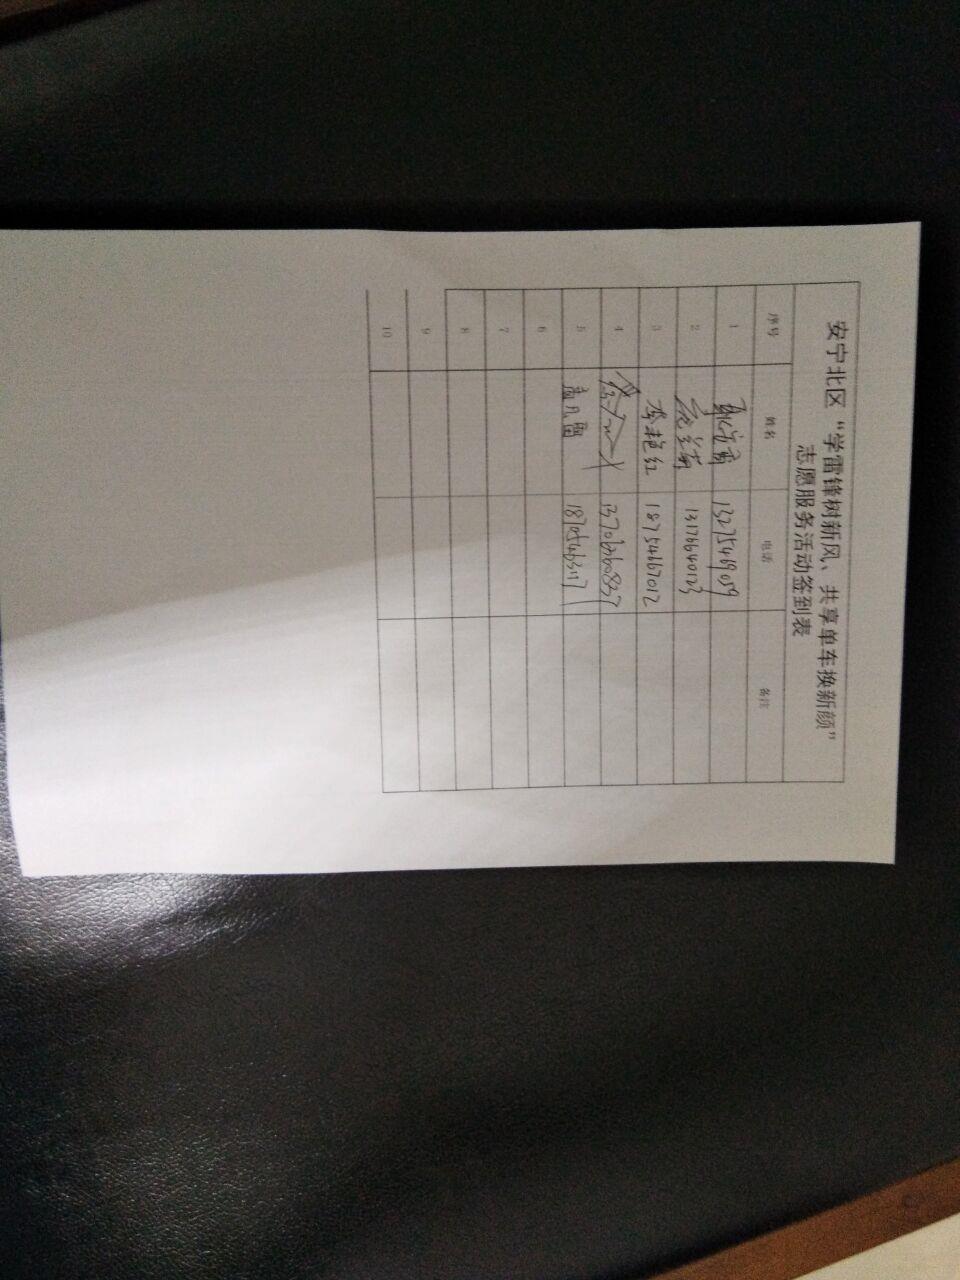 安宁北区“学雷锋树新风、共享单车换新颜”
志愿服务活动签到表
序号 姓名 电话 备注
1 13275469059
2 13176640123
3 李艳红 18754667012
4 13706360837
5 孟凡雷 18705463117
6
7
8
9
10